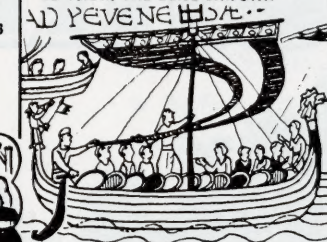 AD PEVENE SÆ